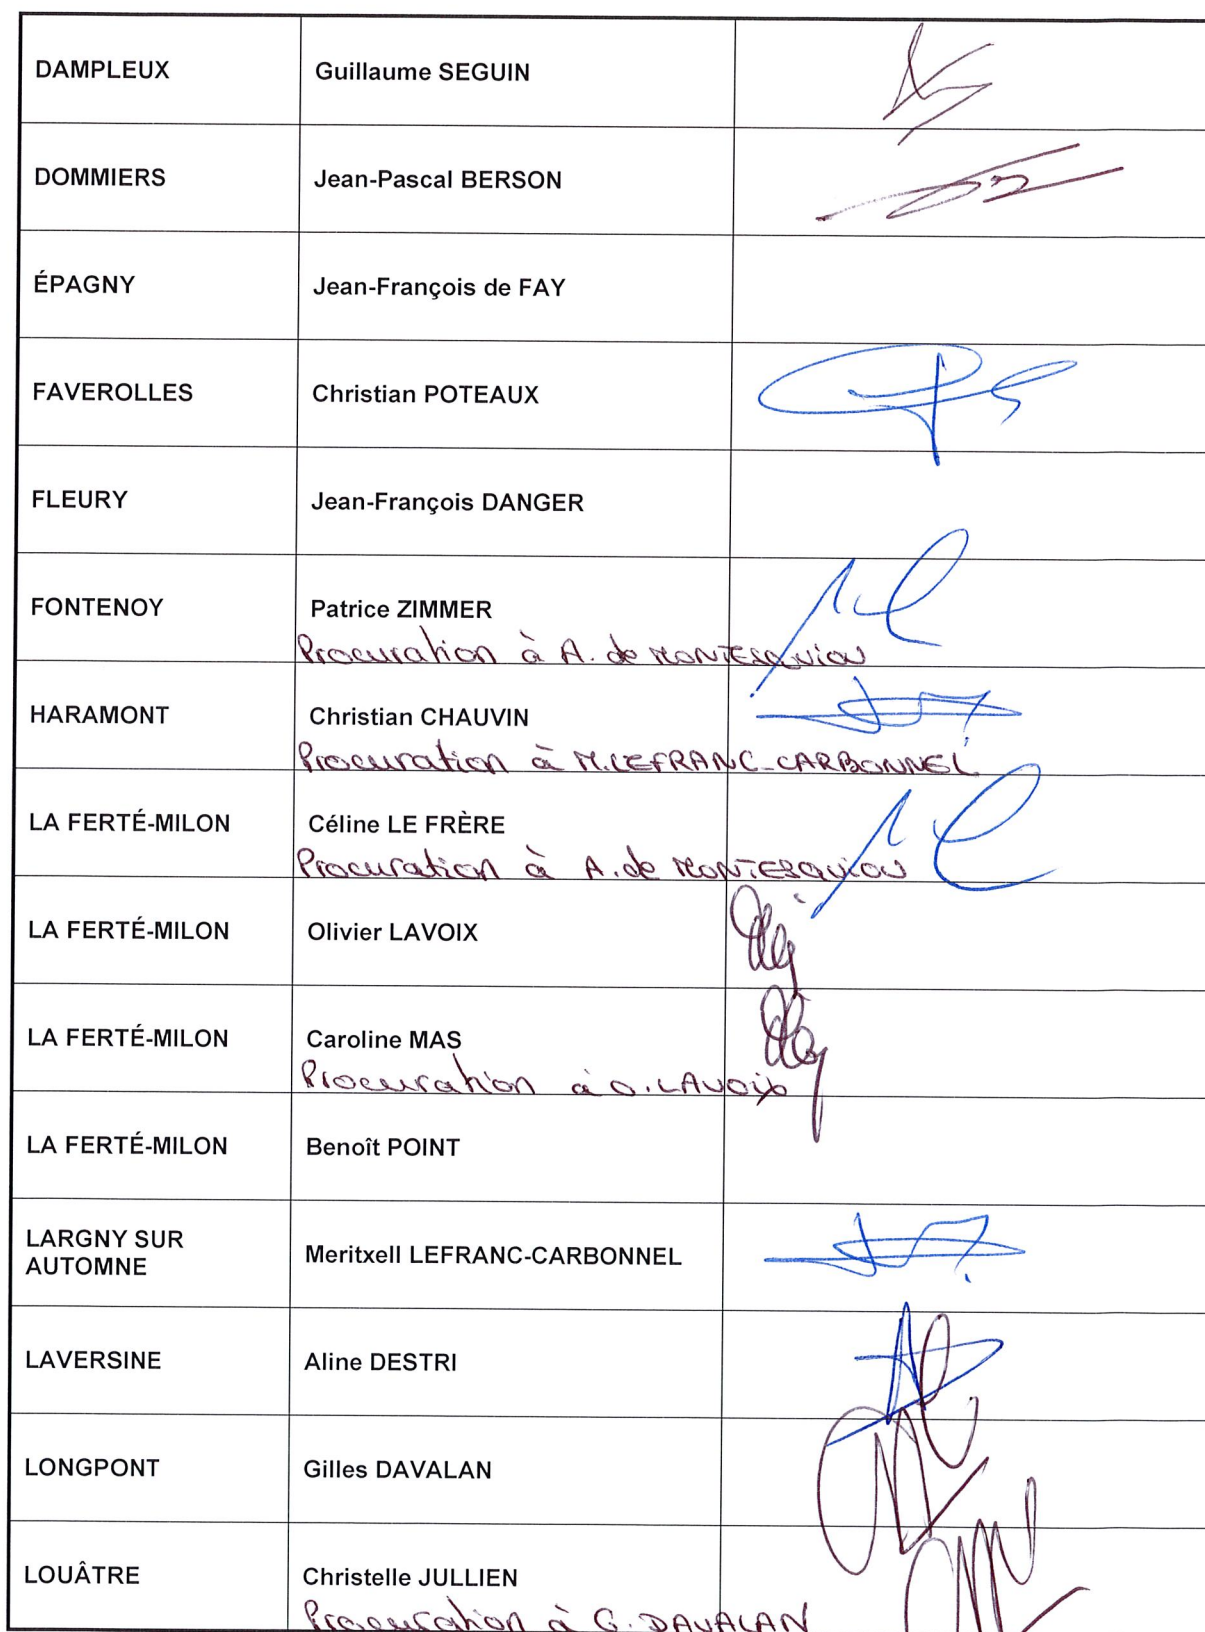 DAMPLEUX Guillaume SEGUIN
DOMMIERS Jean-Pascal BERSON
ÉPAGNY Jean-François de FAY
FAVEROLLES Christian POTEAUX
FLEURY Jean-François DANGER
FONTENOY Patrice ZIMMER
Procuration à A. de MONTESQUIOU
HARAMONT Christian CHAUVIN
Procuration à M. LEFRANC-CARBONNEL
LA FERTÉ-MILON Céline LE FRÈRE
Procuration à A. de MONTESQUIOU
LA FERTÉ-MILON Olivier LAVOIX
LA FERTÉ-MILON Caroline MAS
Procuration à O. LAVOIX
LA FERTÉ-MILON Benoît POINT
LARGNY SUR
AUTOMNE Meritxell LEFRANC-CARBONNEL
LAVERSINE Aline DESTRI
LONGPONT Gilles DAVALAN
LOUÂTRE Christelle JULLIEN
Procuration à G. DAVALAN